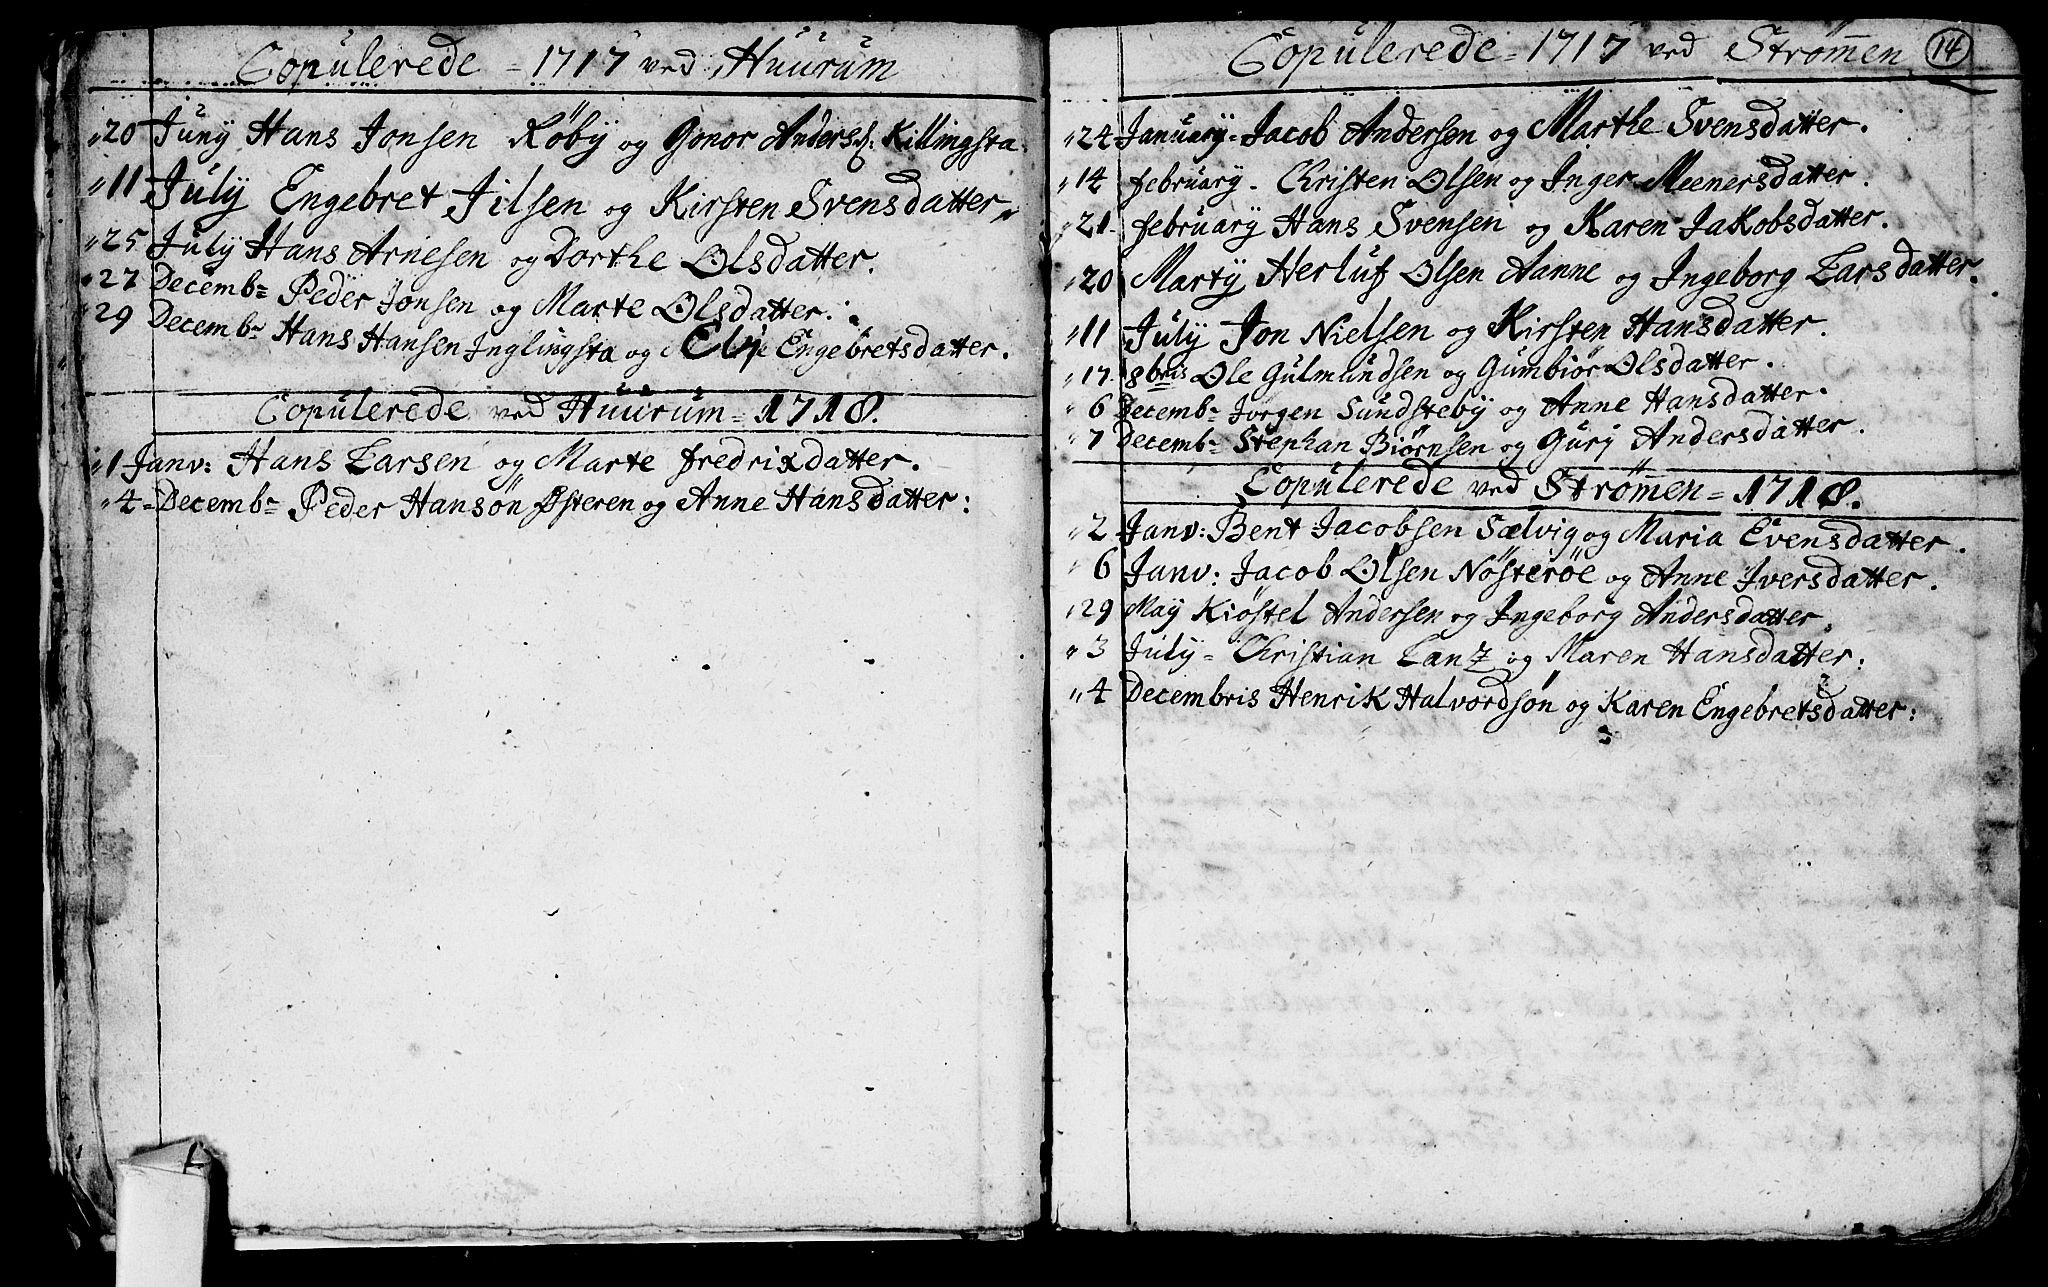 Copulerede = 1717 ved Huurum
20 Juny Hans Jonsen Røby og Gonor Andersd: Killingsta.
11 July Engebret Jilsen og Kirsten Svensdatter
25 July Hans Arnesen og Dorthe Olsdatter.
27 Decembr Peder Jonsen og Marte Olsdatter.
29 Decembr Hans Hansen Inglingsta og Engebretsdatter.
Copulerede ved Huurum = 1718.
1 Janv: Hans Larsen og Marte fredrixdatter.
4 = Decembr Peder Hansøn Østeren og Anne Hansdatter:
Copulerede = 1717 ved Strømen 14
24 January = Jacob Andersen og Marthe Svensdatter.
14 february. Christen Olsen og Inger Meenersdatter.
21 february Hans Svensen og Karen Jakobsdatter.
20 Marty Herluf Olsen Aamne og Ingeborg Larsdatter.
11 July Jon Nielsen og Kirsten Hansdatter.
17 8bris Ole Gulmundsen og Gumbiør Olsdatter.
6 Decembr Jorgen Sundsteby og Anne Hansdatter.
7 Decembr Stephan Biørnsen og Gury Andersdatter.
Copulerede ved Strømen = 1718.
2 Janv: Bent Jacobsen Sælvig og Maria Evensdatter.
6 Janv: Jacob Olsen Nøsterøe og Anne Iversdatter.
29 May Kiøstel Andersen og Ingeborg Andersdatter.
3 July = Christian Lanz og Maren Hansdatter:
4 Decembris Henrik Halvordsøn og Karen Engebretsdatter: